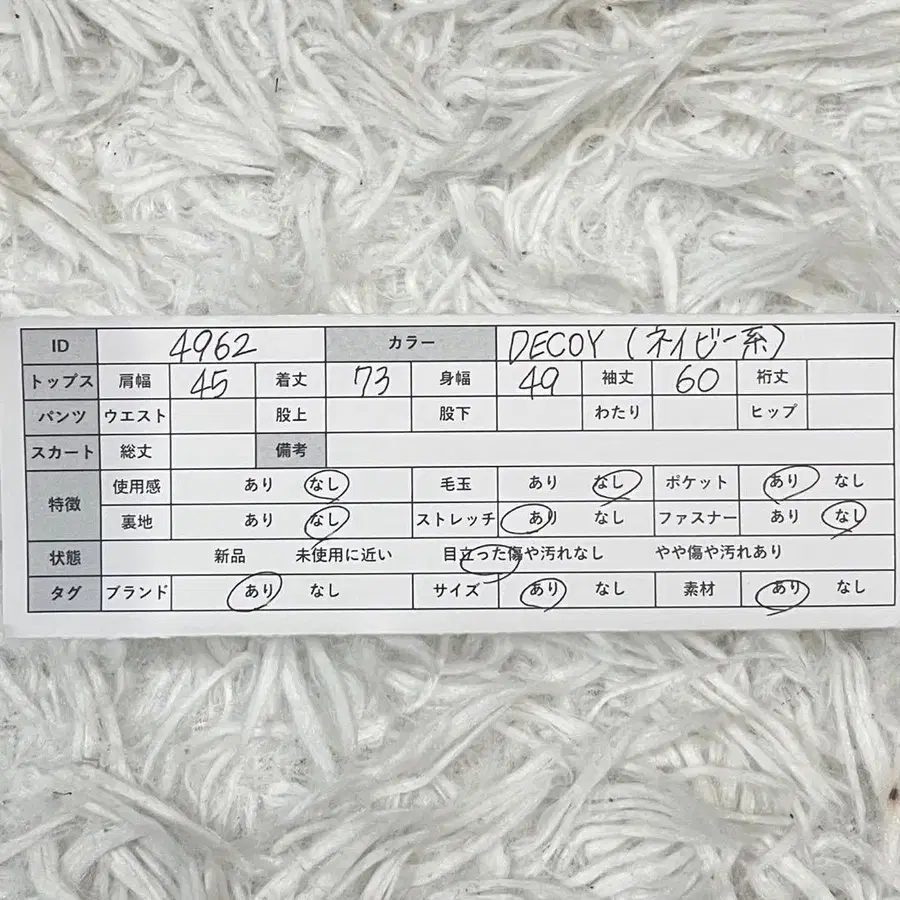 ID 4962 カラー DECOY (ネイビー系)
トップス 肩幅 45 着丈 73 身幅 49 袖丈 60 裄丈
パンツ ウエスト 股上 股下 わたり ヒップ
スカート 総丈 備考
特徴 使用感 あり なし 毛玉 あり なし ポケット あり なし
裏地 あり なし ストレッチ あり なし ファスナー あり なし
状態 新品 未使用に近い 目立った傷や汚れなし やや傷や汚れあり
タグ ブランド あり なし サイズ あり なし 素材 あり なし